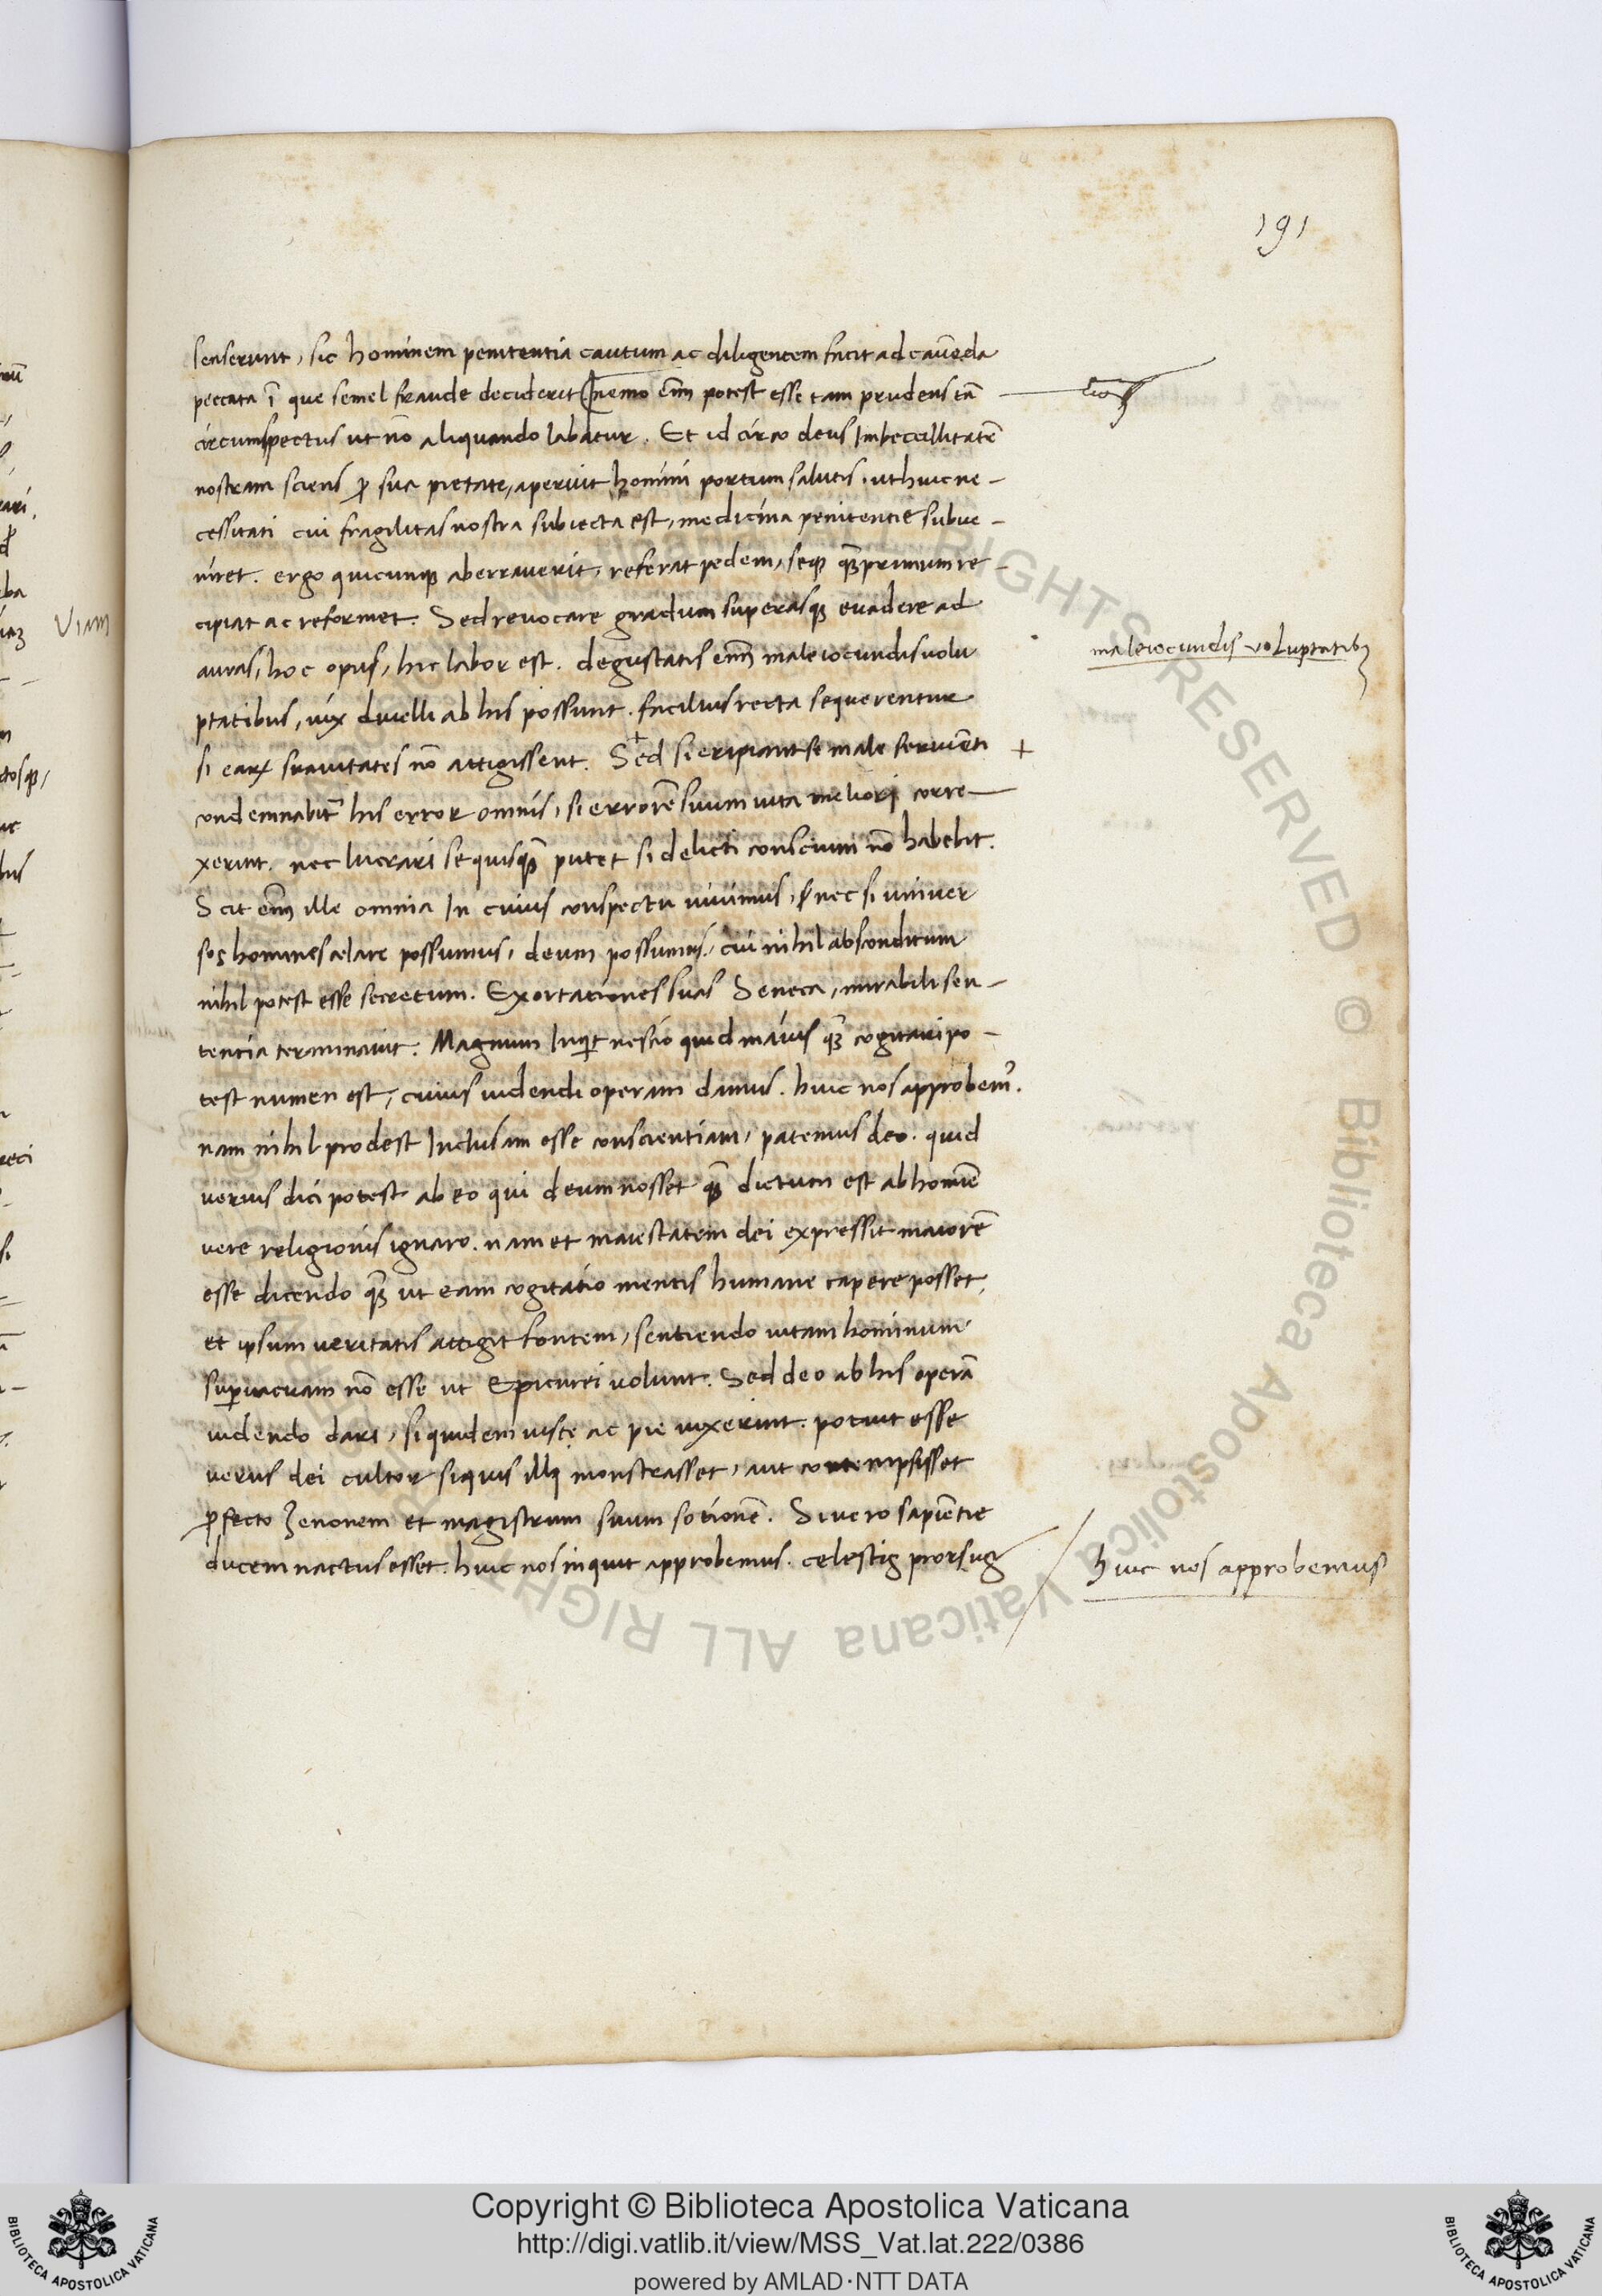 191
senserunt, sic hominem penitentia cautum ac diligentem facit ad cauēda
peccata ī que semel fraude deciderit nemo eīm potest esse tam prudens tā
circumspectus ut nō aliquando labatur. Et id circo deus Imbecillitatē
nostram sciens ꝓ sua pietate, aperuit homini portum salutis. ut huic ne-
cessitati cui fragilitas nostra subiecta est, medicina penitentie subue-
niret. ergo quicunqꝫ aberrauerit, referat pedem, seqꝫ qꝫprimum re-
cipiat ac reformet. Sed reuocare gradum superasqꝫ euadere ad
auras, hoc opus, hic labor est. degustatis eīm male iocundis uolu
ptatibus, uix diuelli ab his possunt. facilius recta sequerentur
si eaꝝ suauitates nō attigissent. Sed si eripiant se male seruiēti +
condemnabit̄ his error omnis, si errorē suum uita meliori corre-
xerint. nec lucrari se quisqꝫ putet si delicti conscium nō habebit.
Scit eīm ille omnia In cuius conspectu uiuimus, nec si uniuer
sos homines celare possumus, deum possumus, cui nihil absconditum
nihil potest esse secretum. Exortationes suas Seneca, mirabili sen-
tentia terminauit. Magnum Inqͥt nescio quid maius qꝫ cogitari po-
test numen est, cuius uidendi operam damus. huic nos approbemꝰ.
nam nihil prodest Inclusam esse conscientiam, patemus deo. quid
verius dici potest ab eo qui deum nosset qꝫ dictum est ab homīe
vere religionis ignaro. nam et maiestatem dei expressit maiorē
esse dicendo qꝫ ut eam cogitatio mentis humane capere posset,
et ipsum veritatis attigit fontem, sentiendo uitam hominum
suꝑuacuam nō esse ut Epicurei uolunt. Sed deo ab his operā
uidendo dari, siquidem iuste ac pie uixerint. potuit esse
verus dei cultor siquis illi monstrasset, aut contempsisset
ꝓfecto Zenonem et magistrum suum sotionē. Si uero sapiētie
ducem nactus esset. huic nos inquit approbemus. celestis prorsus
male iocundis voluptatibꝫ
Huic nos approbemus
viam
ALL RIGHTS RESERVED © Biblioteca Apostolica Vaticana
Copyright © Biblioteca Apostolica Vaticana
http://digi.vatlib.it/view/MSS_Vat.lat.222/0386
powered by AMLAD·NTT DATA
BIBLIOTECA APOSTOLICA VATICANA
BIBLIOTECA APOSTOLICA VATICANA